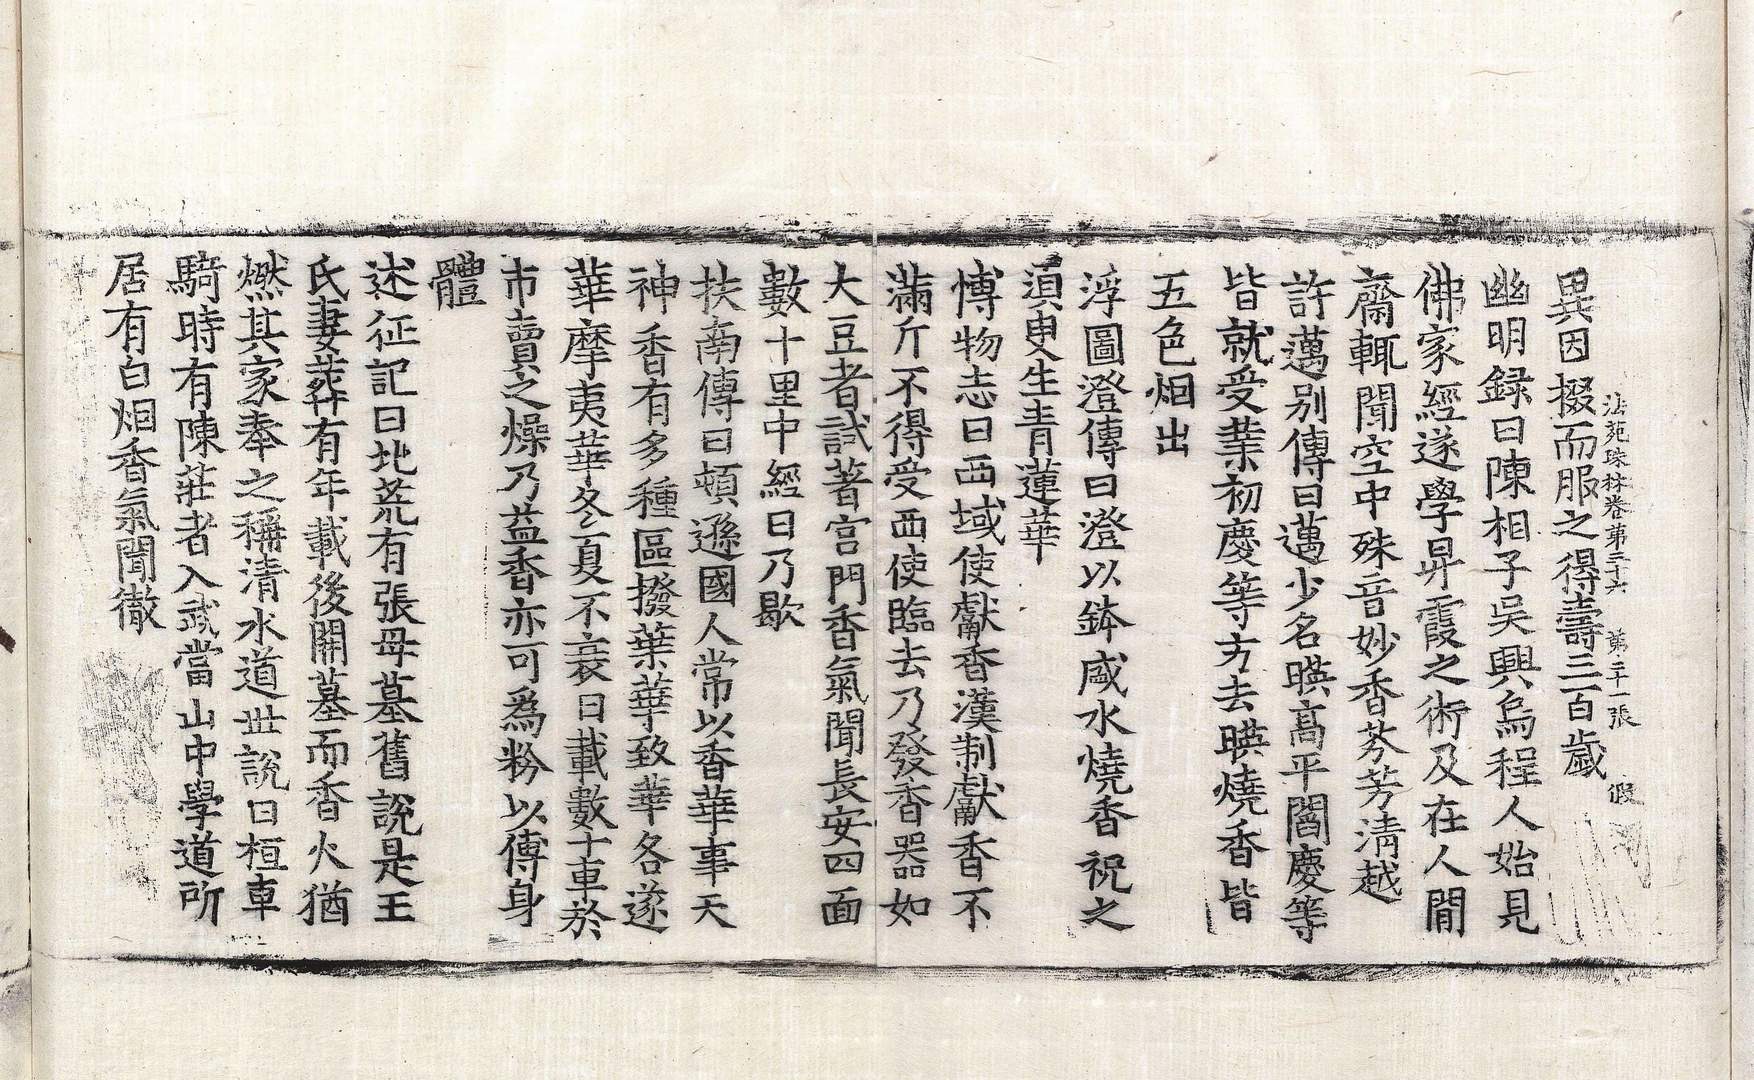 法苑珠林卷第三十六 第二十一張 假
異因掇而服之得壽三百歲
幽明録曰陳相子吳興烏程人始見
佛家經遂學昇霞之術及在人間
齋輒聞空中殊音妙香芬芳清越
許邁別傳曰邁少名暎高平閻慶等
皆就受業初慶等方去暎燒香皆
五色烟出
浮圖澄傳曰澄以鉢盛水燒香祝之
須臾生青蓮華
博物志曰西域使獻香漢制獻香不
滿斤不得受西使臨去乃發香器如
大豆者試著宮門香氣聞長安四面
數十里中經日乃歇
扶南傳曰頓遜國人常以香華事天
神香有多種區撥葉華致華各遂
華摩夷華冬夏不衰日載數十車於
市賣之燥乃益香亦可爲粉以傅身
體
述征記曰北荒有張母墓舊說是王
氏妻葬有年載後開墓而香火猶
燃其家奉之稱清水道世說曰桓車
騎時有陳莊者入武當山中學道所
居有白烟香氣聞徹